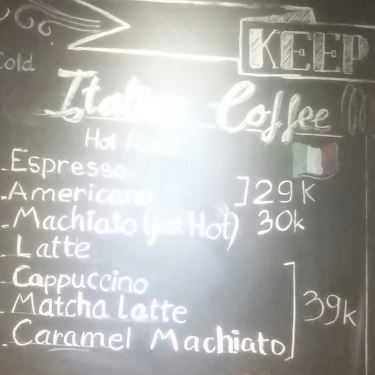 KEEP
Cold
Italian Coffee
Hot
-Espresso
-Americano ] 29k
-Machiato (just Hot) 30k
-Latte
-Cappuccino
-Matcha Latte 39k
-Caramel Machiato